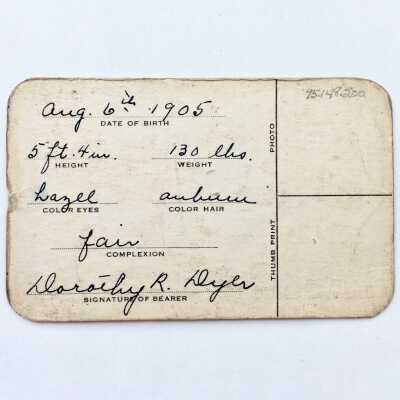 Aug. 6th 1905
DATE OF BIRTH
5 ft. 4 in. 130 lbs.
HEIGHT WEIGHT
hazel auburn
COLOR EYES COLOR HAIR
fair
COMPLEXION
Dorothy R. Dyer
SIGNATURE OF BEARER
95.148.200
PHOTO
THUMB PRINT